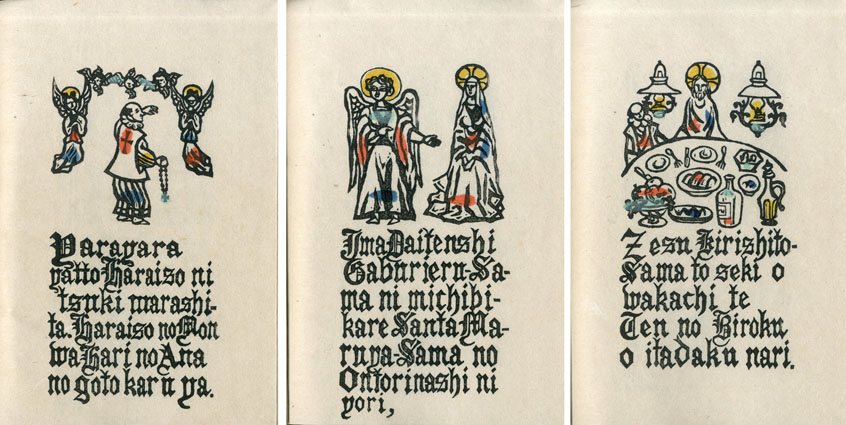 Yarayara
yatto Haraiso ni
tsuki marashi-
ta. Haraiso no Mon
wa Hari no Ana
no goto karu ya.
Ima Daitenshi
Gaburieru-Sa-
ma ni michibi-
kare Santa Ma-
ruya-Sama no
Ontorinashi ni
yori,
Zesu Kirishito-
Sama to seki o
wakachi te
Ten no Biroku
o itadaku nari.